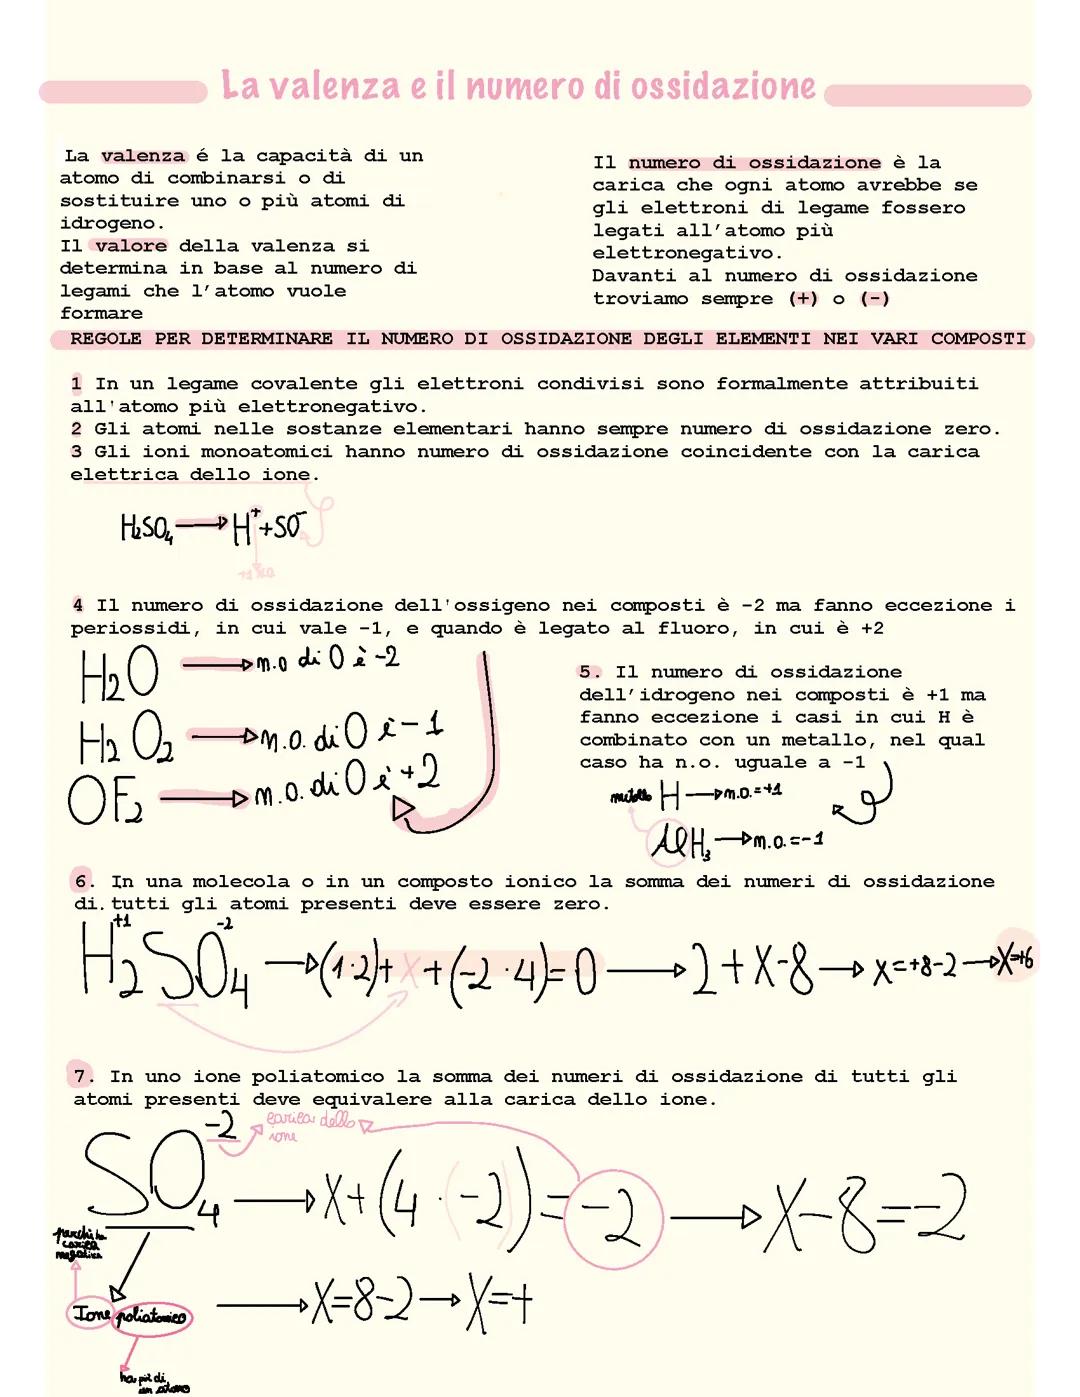 La valenza e il numero di ossidazione
La valenza é la capacità di un
atomo di combinarsi o di
sostituire uno o più atomi di
idrogeno.
Il valore della valenza si
determina in base al numero di
legami che l'atomo vuole
formare
Il numero di ossidazione è la
carica che ogni atomo avrebbe se
gli elettroni di legame fossero
legati all'atomo più
elettronegativo.
Davanti al numero di ossidazione
troviamo sempre (+) o (-)
REGOLE PER DETERMINARE IL NUMERO DI OSSIDAZIONE DEGLI ELEMENTI NEI VARI COMPOSTI
1 In un legame covalente gli elettroni condivisi sono formalmente attribuiti
all'atomo più elettronegativo.
2 Gli atomi nelle sostanze elementari hanno sempre numero di ossidazione zero.
3 Gli ioni monoatomici hanno numero di ossidazione coincidente con la carica
elettrica dello ione.
H₂SO₄ → H⁺+SO⁻
+1
4 Il numero di ossidazione dell'ossigeno nei composti è -2 ma fanno eccezione i
periossidi, in cui vale -1, e quando è legato al fluoro, in cui è +2
H₂O → n.o di O è -2
H₂O₂ → n.o. di O è -1
OF₂ → n.o. di O è +2
5. Il numero di ossidazione
dell'idrogeno nei composti è +1 ma
fanno eccezione i casi in cui H è
combinato con un metallo, nel qual
caso ha n.o. uguale a -1
metallo H → n.o.=+1
AlH₃ → n.o.=-1
6. In una molecola o in un composto ionico la somma dei numeri di ossidazione
di.tutti gli atomi presenti deve essere zero.
+1 -2
H₂SO₄ → (1·2)+x+(-2·4)=0 → 2+x-8 → x=+8-2 → x=+6
7. In uno ione poliatomico la somma dei numeri di ossidazione di tutti gli
atomi presenti deve equivalere alla carica dello ione.
carica dello
ione
SO₄⁻² → x+(4·(-2))=-2 → x-8=-2
perchè ha
carica
negativa
→ x=8-2 → x=+
Ione poliatomico
ha più di
un atomo